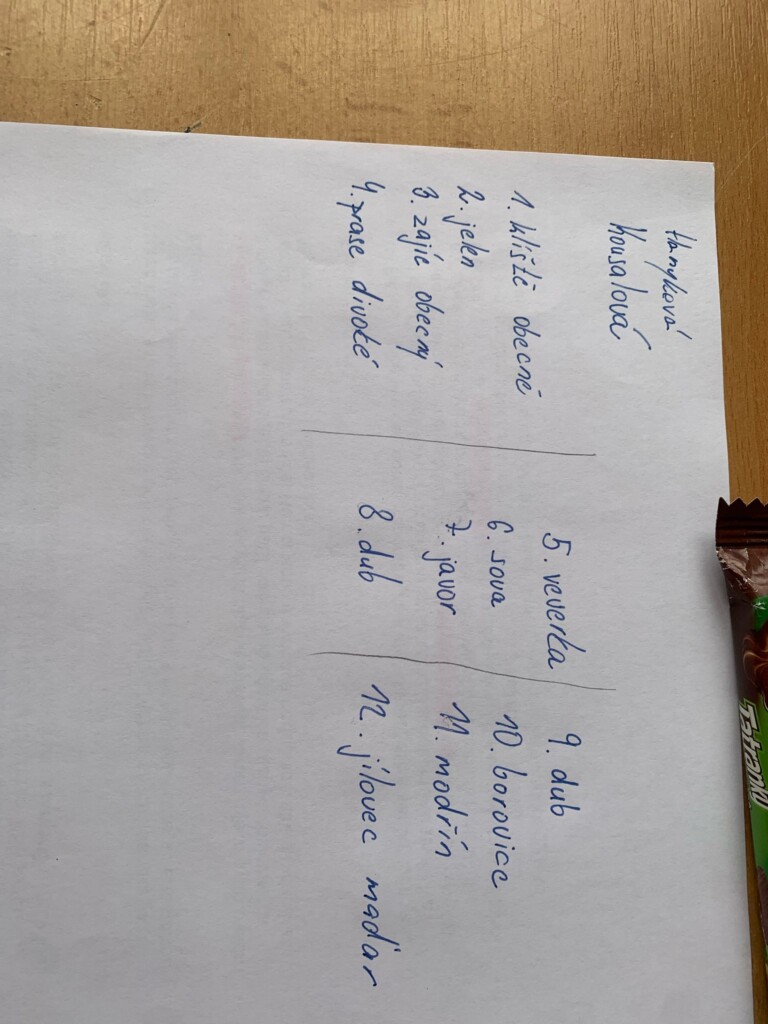 Hanyková
Kousalová
1. klíště obecné
2. jelen
3. zajíc obecný
4. prase divoké
5. veverka
6. sova
7. javor
8. dub
9. dub
10. borovice
11. modřín
12. jílovec maďar
Tatranky